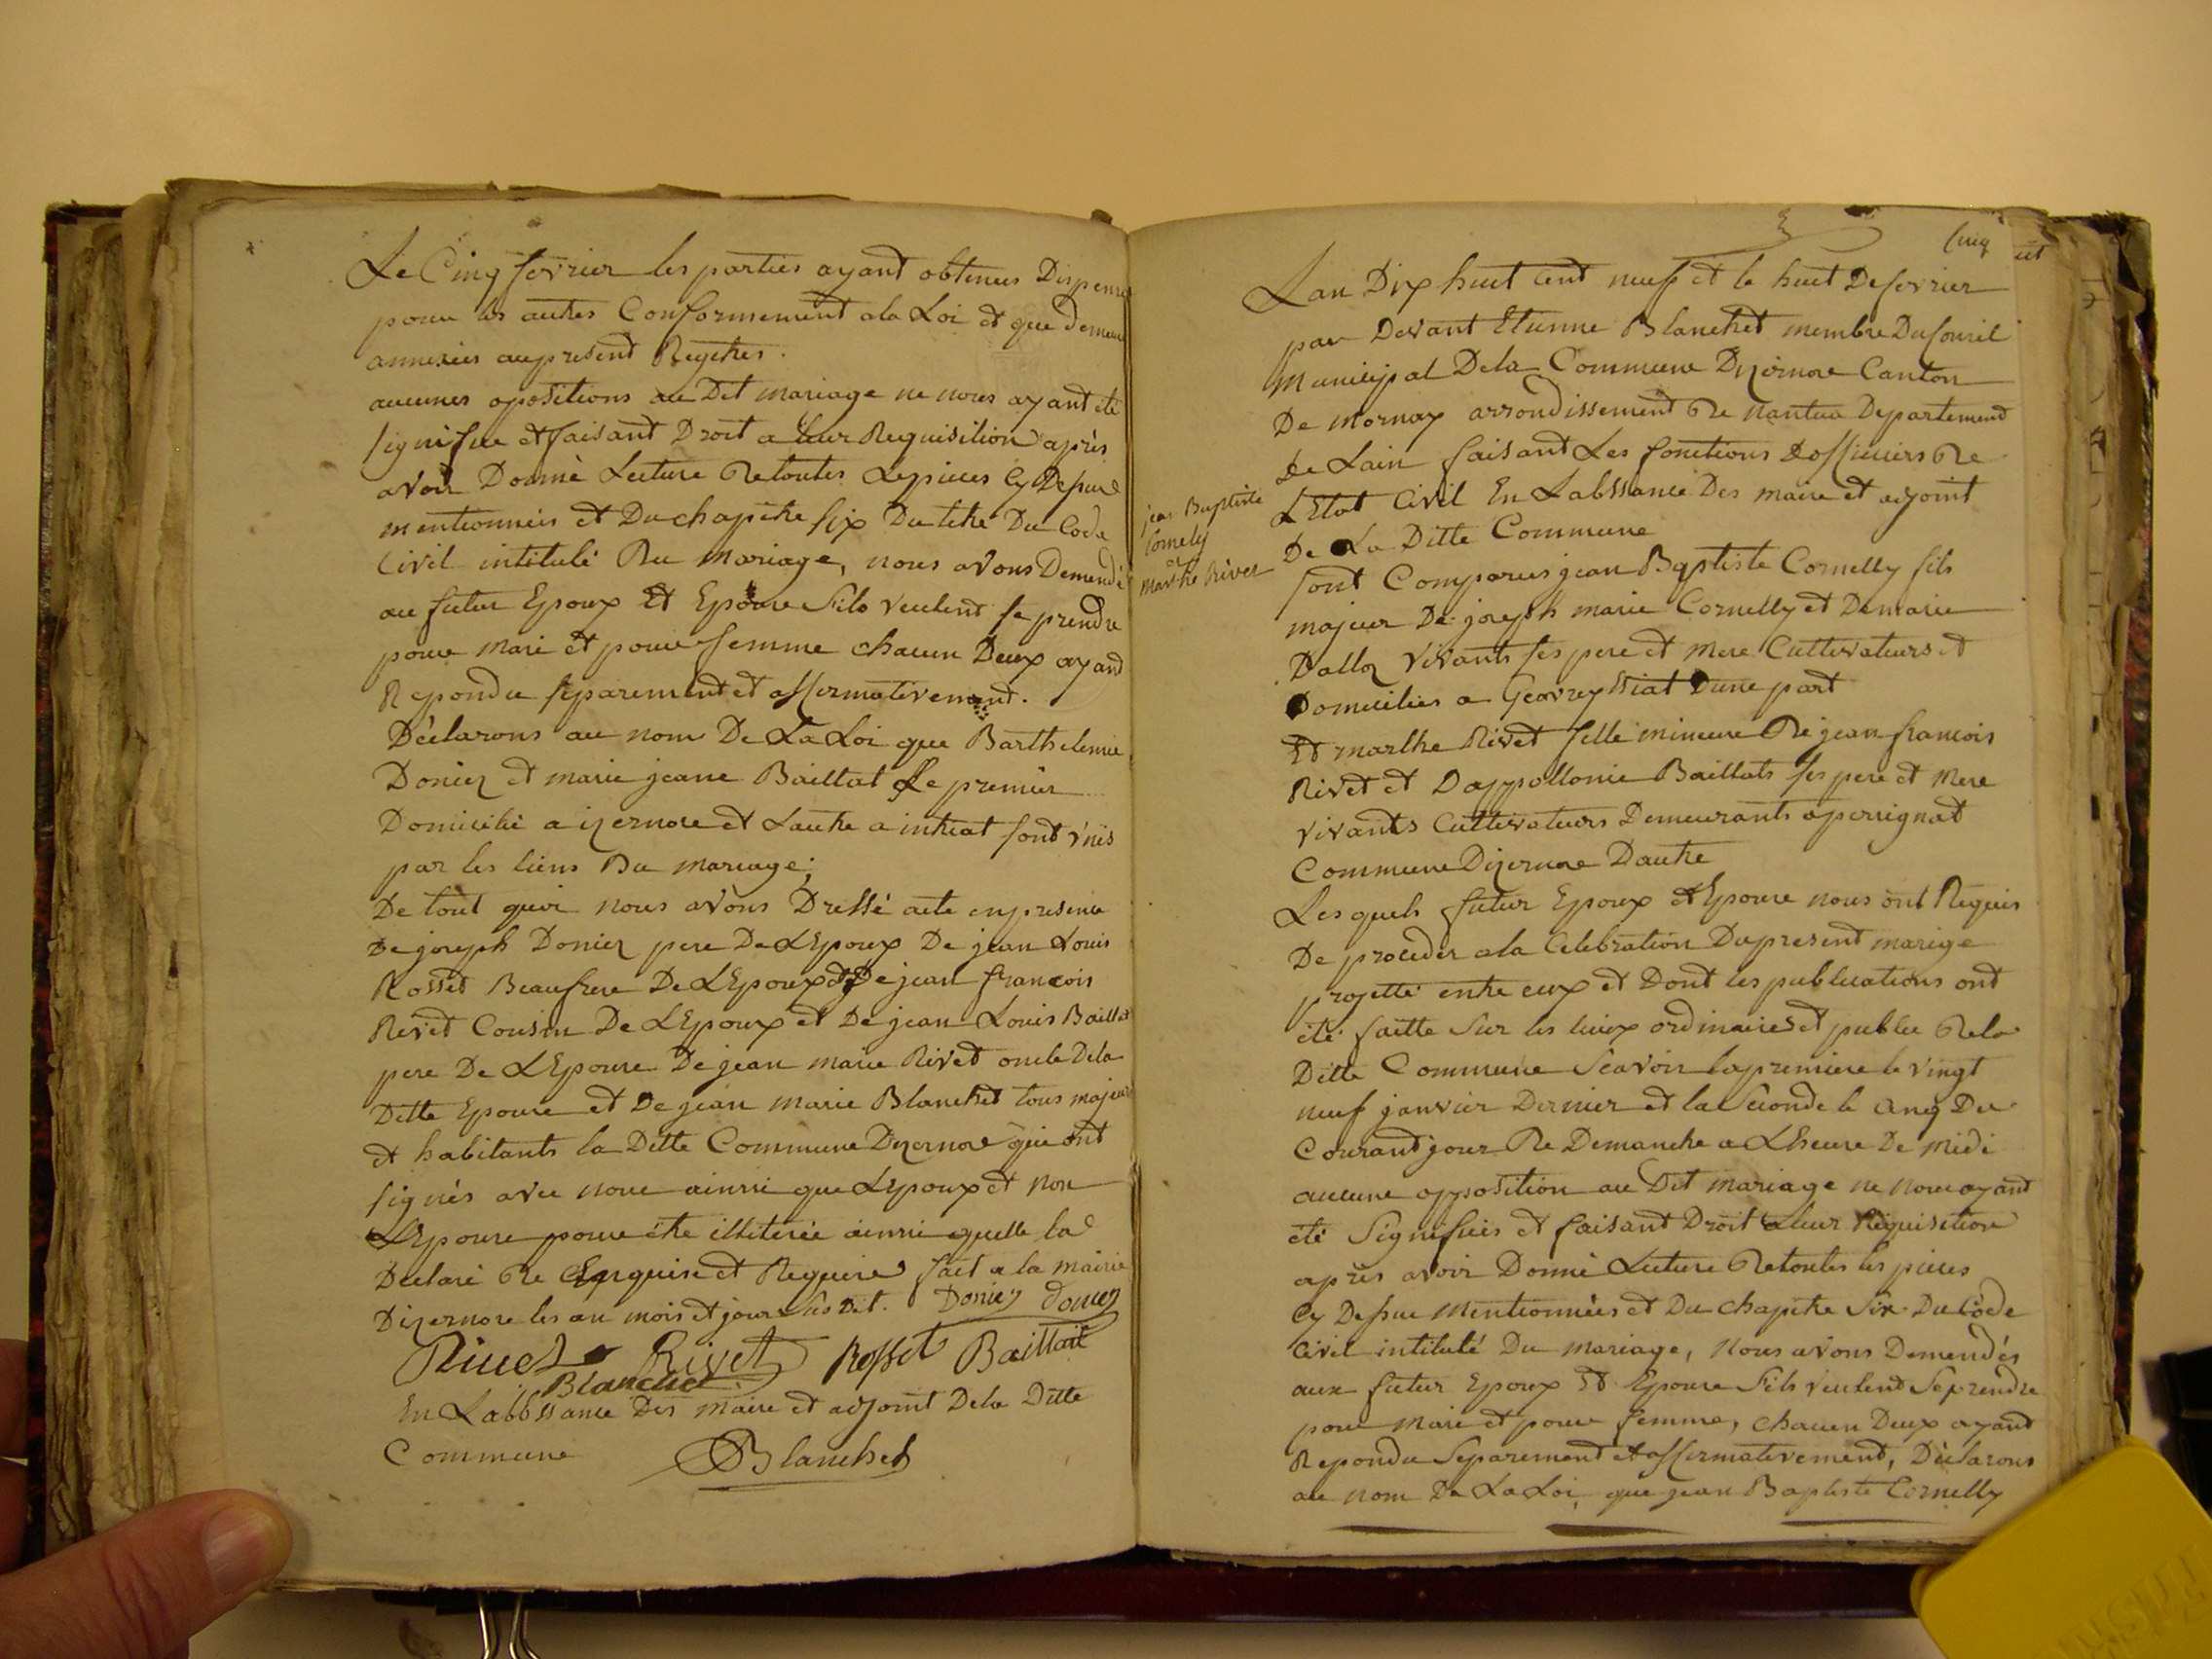 Le Cinq fevrier les parties ayant obtenues Dispense
pour les autres Conformement a la Loi et que demeure
annexées au present Regitres.
aucunes opositions au Dit mariage ne nous ayant été
signifiée et faisant Droit a leur Requisition après
avoir Donné Lecture De toutes Les pieces Cy Dessus
mentionnées et Du chapitre six Du titre Du Code
Civil intitulé Du Mariage, nous avons Demendé
au futur Epoux Et Epouse sils veulent se prendre
pour Mari et pour femme chacun Deux ayant
Repondu separement et affirmativement.
Déclarons au nom De La Loi que Barthelemie
Donier et marie jeanne Baillat Le premier
Domicilié a izernore et Lautre a intriat sont unis
par les liens Du mariage;
De tout quoi nous avons Dressé acte en presence
De joseph Donier pere De LEpoux De jean Louis
Rosset Beaufrere De LEpoux et De jean francois
Rivet Cousin De LEpoux et De jean Louis Baillat
pere De LEpouse De jean marie Rivet oncle De la
Ditte Epouse et De jean marie Blanchet tous majeurs
et habitants la Ditte Commune Dizernore qui ont
signés avec nous ainsi que LEpoux et non
LEpouse pour étre illiterée ainsi quelle la
Declaré De Enquise et Requise fait a la mairie
Dizernore les an mois et jour susdit. Donier donier
Rivet Rivet Rosset Baillat
Blanchet
En Labbssance Des maire et adjoint De la Ditte
Commune Blanchet
Cinq
Lan Dix huit cent neuf et le huit De fevrier
par Devant Etienne Blanchet membre Du Conseil
Municipal De la Commune Dizernore Canton
De Mornay arrondissement De nantua Departement
De Lain faisant Les fonctions Dofficiers De
LEtat Civil En Labssance Des maire et adjoint
De La Ditte Commune
jean Baptiste
Cornely
et
Marthe Rivet
sont Comparus jean Baptiste Cornelly fils
majeur De joseph marie Cornelly et De marie
Dalloz vivants ses pere et Mere Cultivateurs et
Domiciliés a Geovreyssiat Dune part
Et marthe Rivet fille mineure De jean francois
Rivet et Dappollonie Baillats ses pere et Mere
vivants Cultivateurs Demeurants a perrignat
Commune Dizernore Dautre
Les quels futur Epoux et Epouse nous ont Requis
De proceder a la Celebration Du present marige
projetté entre eux et Dont les publications ont
été faitte sur les lieux ordinaires et public De la
Ditte Commune Scavoir la premiere le vingt
neuf janvier Dernier et la Seconde le cinq Du
Courant jour De Demanche a Lheure De midi
aucune opposition au Dit mariage ne nous ayant
été Signifiés et faisant Droit a leur Requisition
après avoir Donné Lecture De toutes les pieces
Cy Dessus Mentionnées et Du chapitre Six Du Code
Civil intitulé Du mariage, Nous avons Demendés
aux futur Epoux Et Epouse Sils veulent Se prendre
pour Mari et pour femme, chacun Deux ayant
Repondu Separement et affirmativement, Déclarons
au nom De La Loi, que jean Baptiste Cornelly